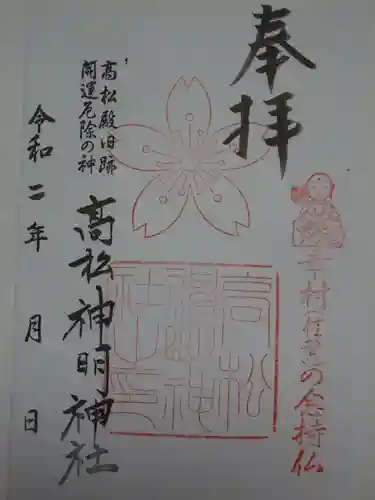 奉拝
幸村(信繁)の念持仏
高松神明神社印
高松殿旧跡
開運厄除の神
高松神明神社
令和二年 月 日